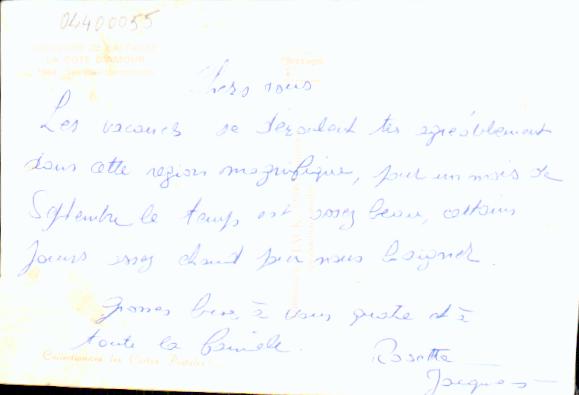 04400055
LA COTE D'AMOUR
Chers vous
Les vacances se déroulent très agréablement
dans cette région magnifique, pour un mois de
Septembre le temps est assez beau, certains
jours assez chaud pour nous baigner.
Grosses bises à vous quatre et à
toute la famille.
Collectionnez les Cartes Postales
Rosette
Jacques